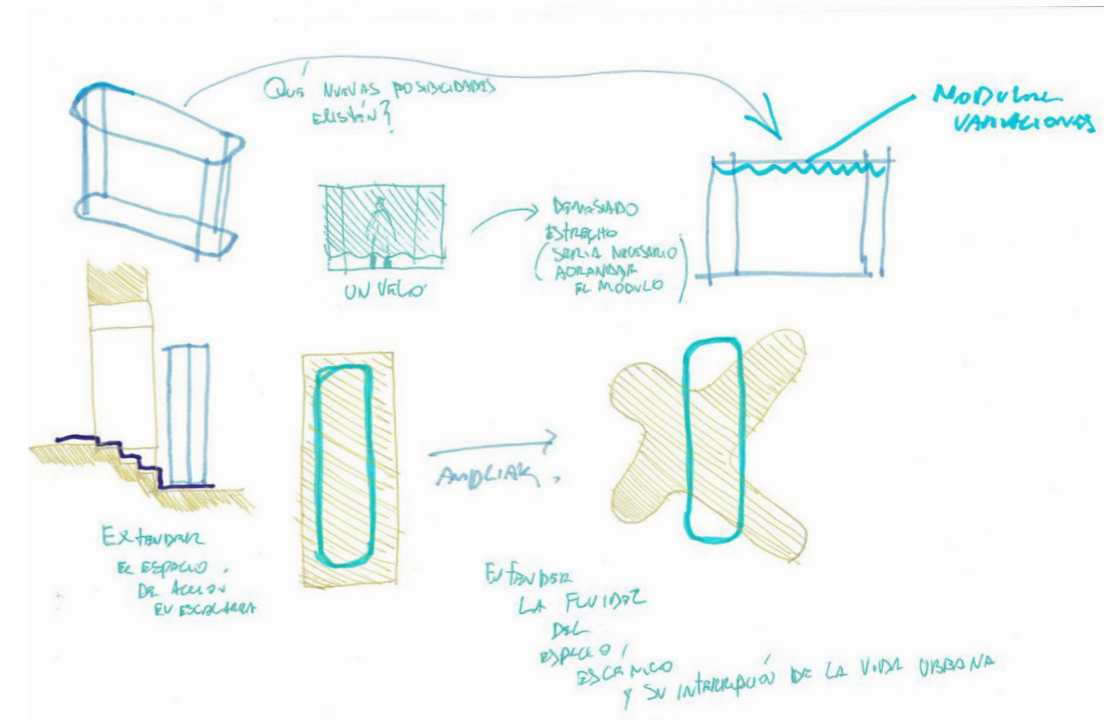 QUÉ NUEVAS POSIBILIDADES
EXISTEN?
MODULAR
VARIACIONES
DEMASIADO
ESTRECHO
(SERIA NECESARIO
AGRANDAR
EL MÓDULO)
UN VELO
AMPLIAR.
EXTENDER
EL ESPACIO
DE ACCION
EN ESCALERA
EXTENDER
LA FLUIDEZ
DEL
ESPACIO
ESCÉNICO
Y SU INTERRUPCIÓN DE LA VIDA URBANA